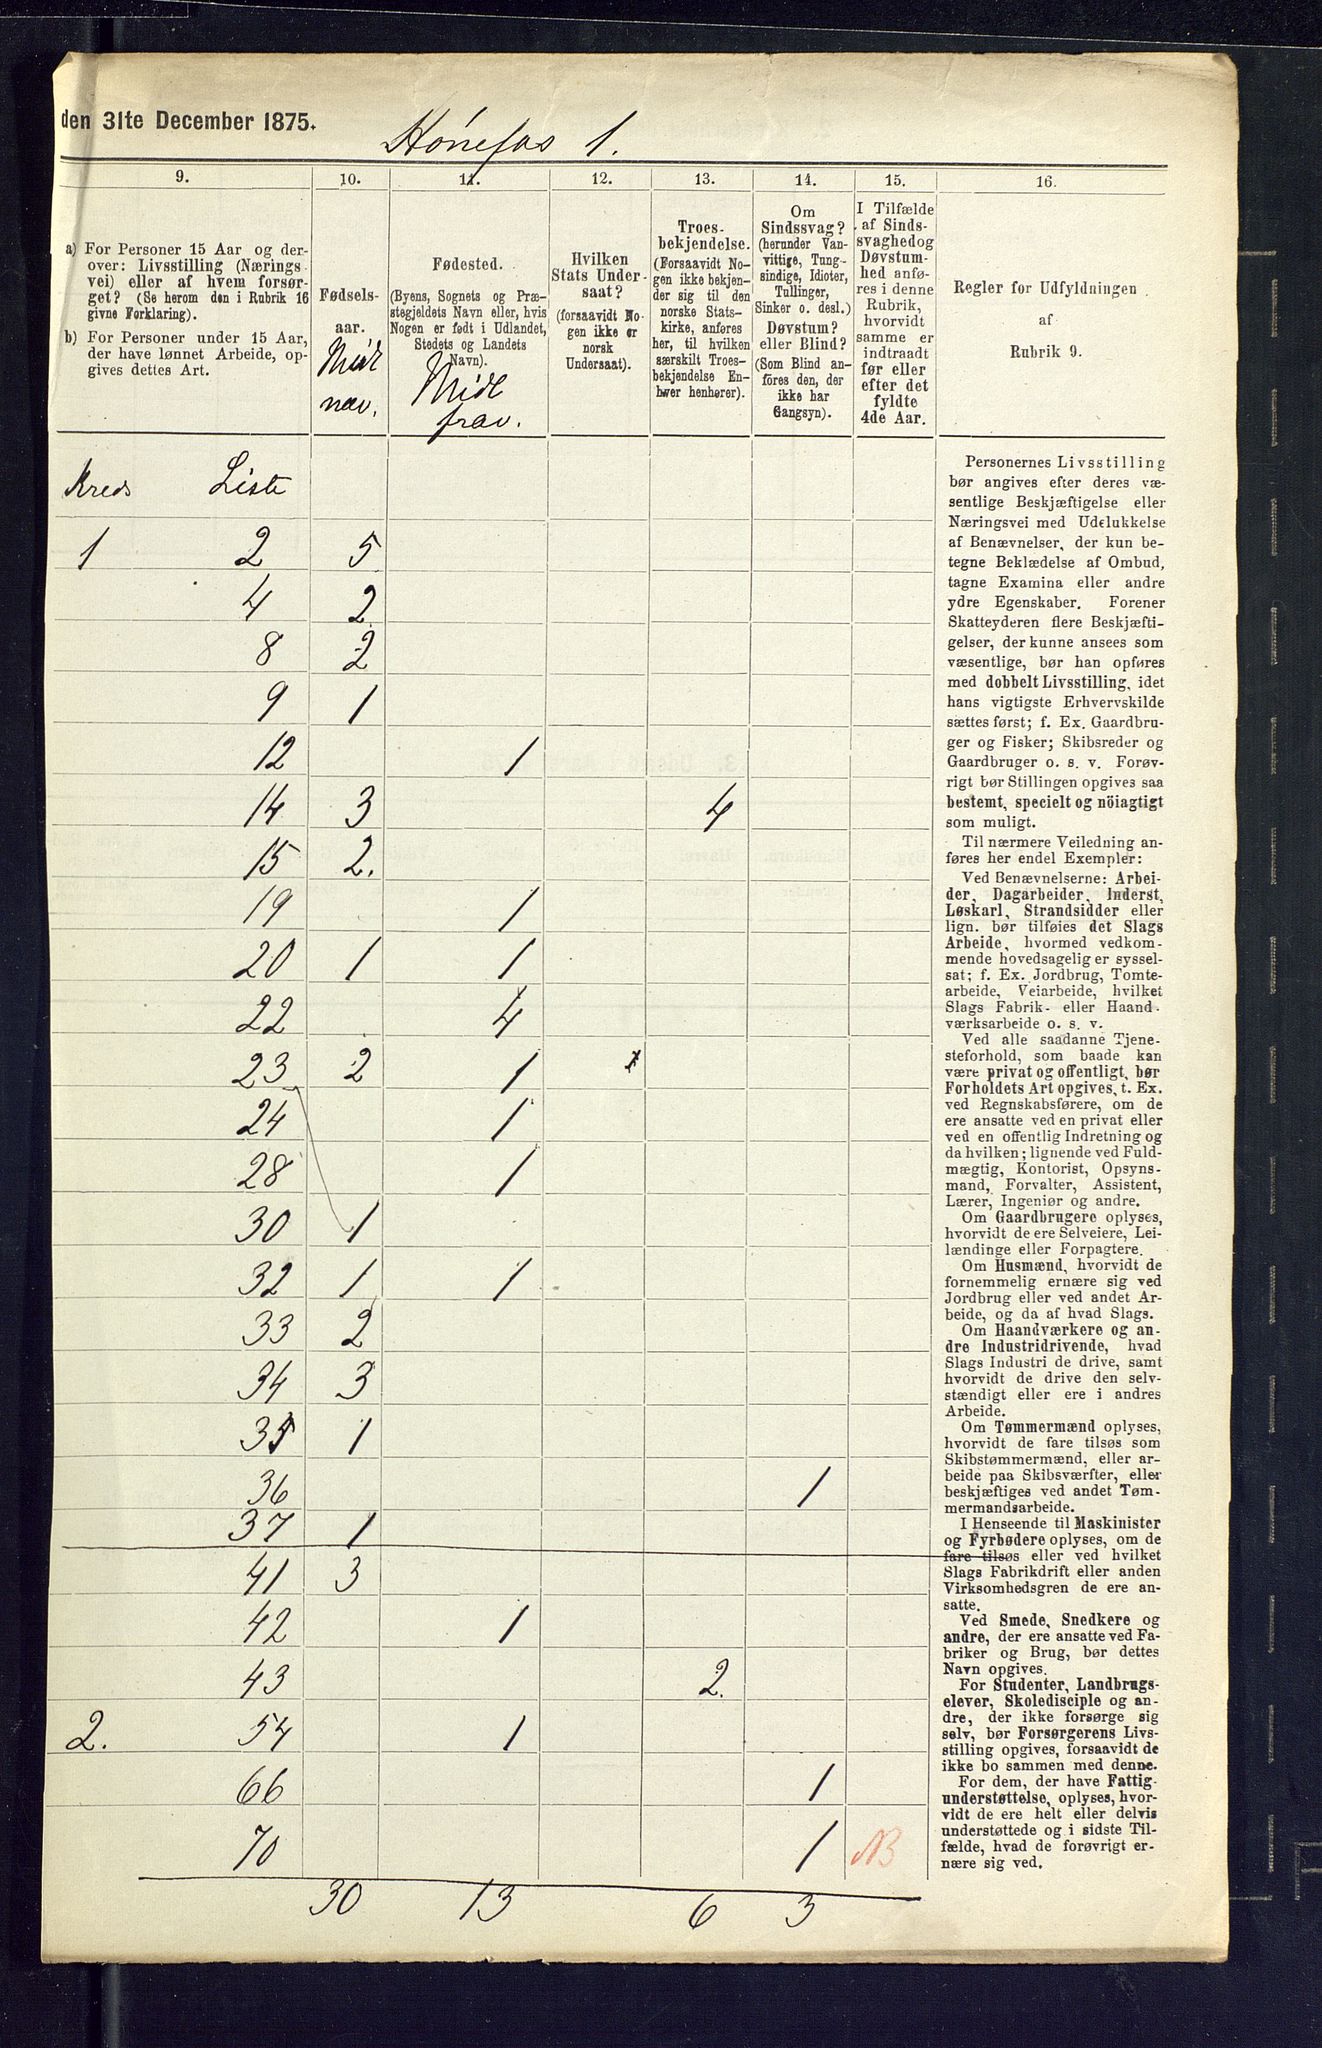 den 31te December 1875.
Hønefos 1.
9. 10. 11. 12. 13. 14. 15. 16.
a) For Personer 15 Aar og der-
over: Livsstilling (Nærings-
vei) eller af hvem forsør-
get? (Se herom den i Rubrik 16
givne Forklaring).
b) For Personer under 15 Aar,
der have lønnet Arbeide, op-
gives dettes Art.
Fødsels-
aar.
Midl
nær.
Fødested.
(Byens, Sognets og Præ-
stegjeldets Navn eller, hvis
Nogen er født i Udlandet,
Stedets og Landets
Navn).
Midl
frav.
Hvilken
Stats Under-
saat?
(forsaavidt No-
gen ikke er
norsk
Undersaat).
Troes-
bekjendelse.
(Forsaavidt No-
gen ikke bekjen-
der sig til den
norske Stats-
kirke, anføres
her, til hvilken
særskilt Troes-
bekjendelse En-
hver henhører).
Om
Sindssvag?
(herunder Van-
vittige, Tung-
sindige, Idioter,
Tullinger,
Sinker o. desl.)
Døvstum?
eller Blind?
(Som Blind an-
føres den, der
ikke har
Gangsyn).
I Tilfælde
af Sinds-
svaghed og
Døvstum-
hed anfø-
res i denne
Rubrik,
hvorvidt
samme er
indtraadt
før eller
efter det
fyldte
4de Aar.
Regler for Udfyldningen
af
Rubrik 9.
Kreds Liste
1 2 5
4 2
8 2
9 1
12 1
14 3 4
15 2.
19 1
20 1 1
22 4
23 2 1
24 1
28 1
30 1
32 1 1
33 2
34 3
35 1
36 1
37 1
41 3
42 1
43 2.
2. 54 1
66 1
70 1 NB
30 13 6 3
Personernes Livsstilling
bør angives efter deres væ-
sentlige Beskjæftigelse eller
Næringsvei med Udelukkelse
af Benævnelser, der kun be-
tegne Beklædelse af Ombud,
tagne Examina eller andre
ydre Egenskaber. Forener
Skatteyderen flere Beskjæfti-
gelser, der kunne ansees som
væsentlige, bør han opføres
med dobbelt Livsstilling, idet
hans vigtigste Erhvervskilde
sættes først; f. Ex. Gaardbru-
ger og Fisker; Skibsreder og
Gaardbruger o. s. v. Forøv-
rigt bør Stillingen opgives saa
bestemt, specielt og nöiagtigt
som muligt.
Til nærmere Veiledning an-
føres her endel Exempler:
Ved Benævnelserne: Arbei-
der, Dagarbeider, Inderst,
Løskarl, Strandsidder eller
lign. bør tilføies det Slags
Arbeide, hvormed vedkom-
mende hovedsagelig er syssel-
sat; f. Ex. Jordbrug, Tomte-
arbeide, Veiarbeide, hvilket
Slags Fabrik- eller Haand-
værksarbeide o. s. v.
Ved alle saadanne Tjene-
steforhold, som baade kan
være privat og offentligt, bør
Forholdets Art opgives, t. Ex.
ved Regnskabsførere, om de
ere ansatte ved en privat eller
ved en offentlig Indretning og
da hvilken; lignende ved Fuld-
mægtig, Kontorist, Opsyns-
mand, Forvalter, Assistent,
Lærer, Ingeniør og andre.
Om Gaardbrugere oplyses,
hvorvidt de ere Selveiere, Lei-
lændinge eller Forpagtere.
Om Husmænd, hvorvidt de
fornemmelig ernære sig ved
Jordbrug eller ved andet Ar-
beide, og da af hvad Slags.
Om Haandværkere og an-
dre Industridrivende, hvad
Slags Industri de drive, samt
hvorvidt de drive den selv-
stændigt eller ere i andres
Arbeide.
Om Tømmermænd oplyses,
hvorvidt de fare tilsøs som
Skibstømmermænd, eller ar-
beide paa Skibsværfter, eller
beskjæftiges ved andet Tøm-
mermandsarbeide.
I Henseende til Maskinister
og Fyrbødere oplyses, om de
fare tilsøs eller ved hvilket
Slags Fabrikdrift eller anden
Virksomhedsgren de ere an-
satte.
Ved Smede, Snedkere og
andre, der ere ansatte ved Fa-
briker og Brug, bør dettes
Navn opgives.
For Studenter, Landbrugs-
elever, Skoledisciple og an-
dre, der ikke forsørge sig
selv, bør Forsørgerens Livs-
stilling opgives, forsaavidt de
ikke bo sammen med denne.
For dem, der have Fattig-
understøttelse, oplyses, hvor-
vidt de ere helt eller delvis
understøttede og i sidste Til-
fælde, hvad de forøvrigt er-
nære sig ved.